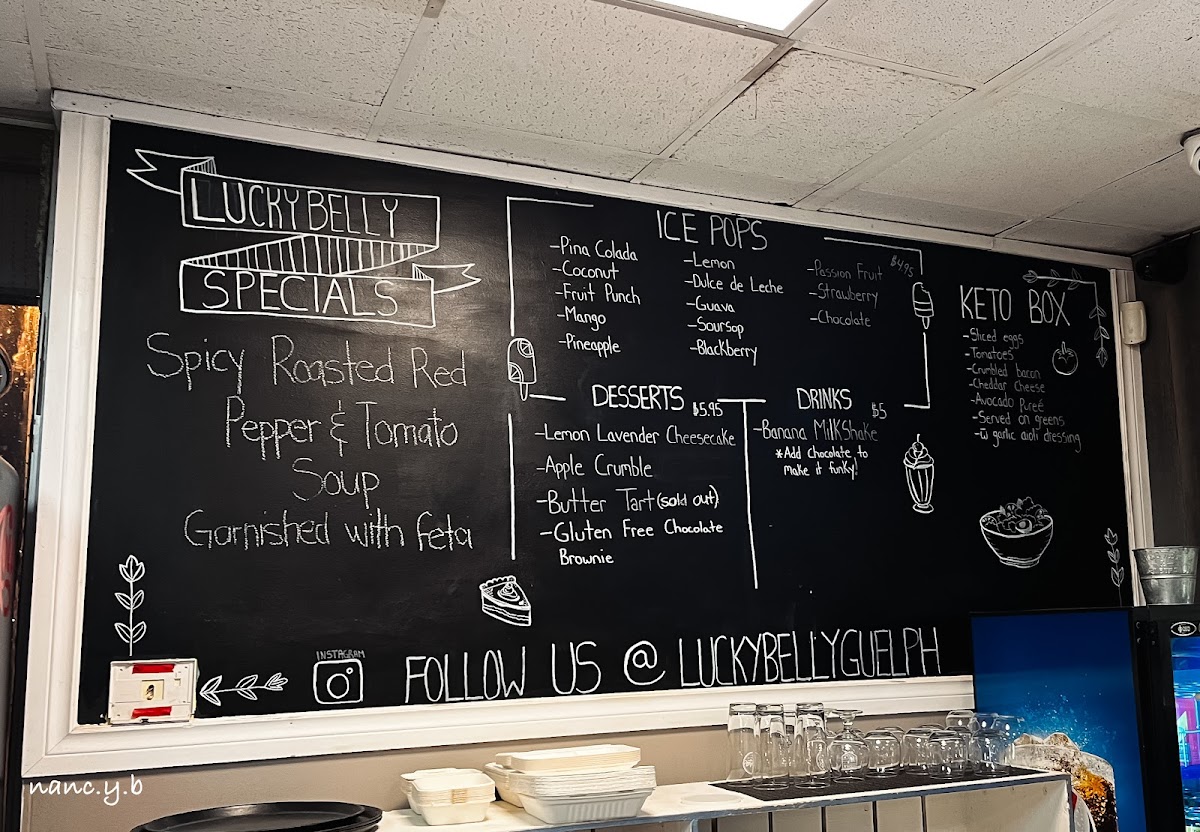 LUCKY BELLY
SPECIALS
Spicy Roasted Red
Pepper & Tomato
Soup
Garnished with feta
ICE POPS
$4.95
-Pina Colada
-Coconut
-Fruit Punch
-Mango
-Pineapple
-Lemon
-Dulce de Leche
-Guava
-Soursop
-Blackberry
-Passion Fruit
-Strawberry
-Chocolate
DESSERTS
$5.95
-Lemon Lavender Cheesecake
-Apple Crumble
-Butter Tart (sold out)
-Gluten Free Chocolate
Brownie
DRINKS
$5
-Banana MilkShake
*Add chocolate to
make it funky!
KETO BOX
-Sliced eggs
-Tomatoes
-Crumbled bacon
-Cheddar Cheese
-Avocado Pureé
-Served on greens
-w̄ garlic aioli dressing
INSTAGRAM
FOLLOW US @ LUCKYBELLYGUELPH
nanc.y.b